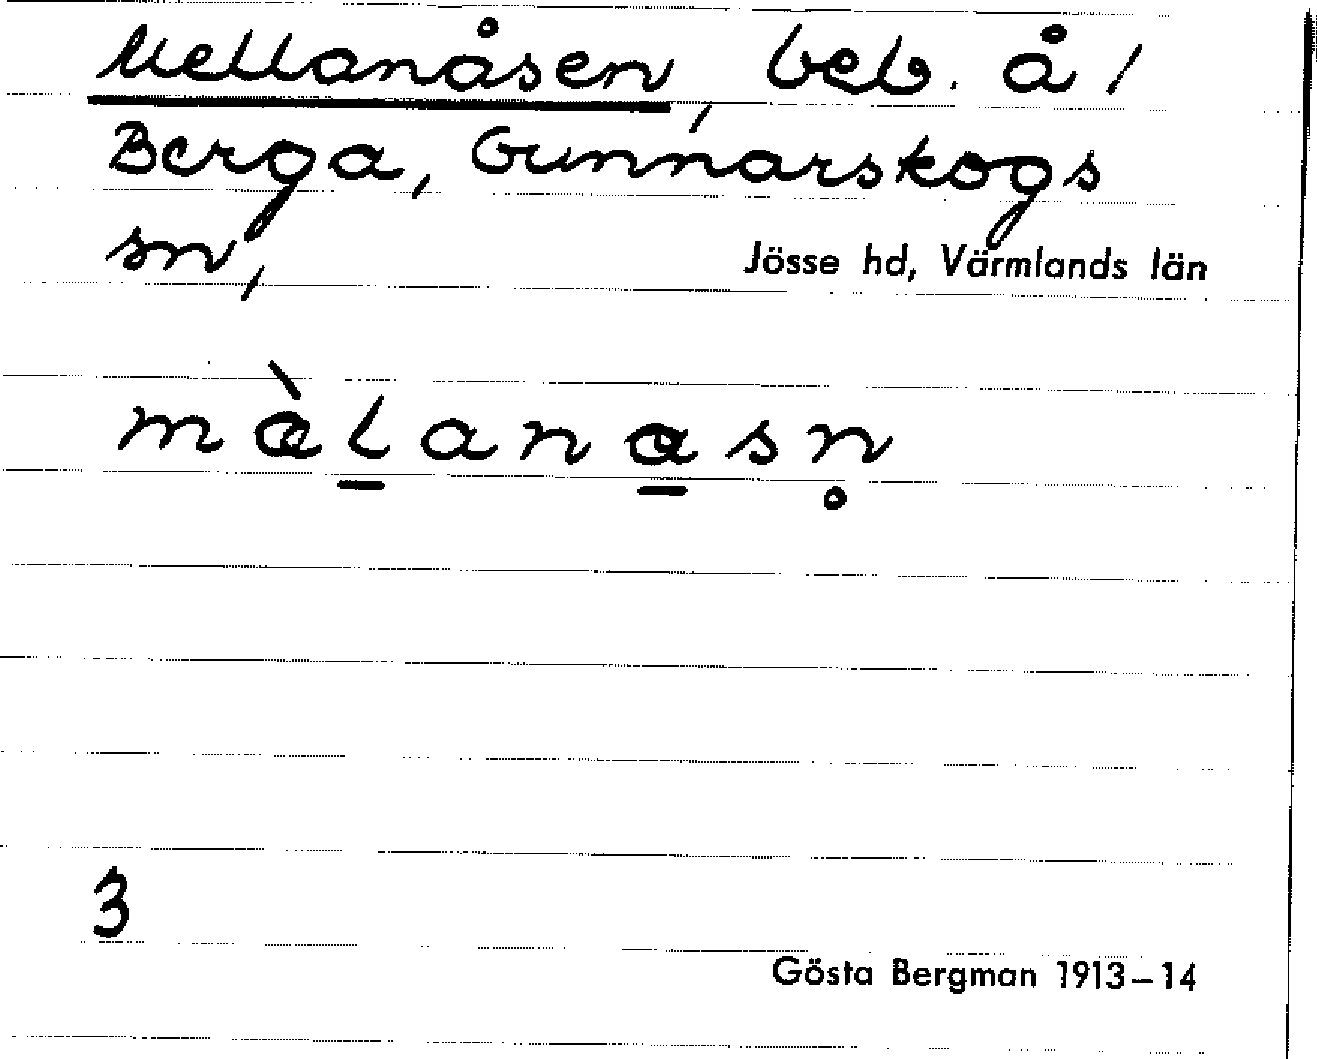 Mellanåsen, beb. å /
Berga, Gunnarskogs
sn, Jösse hd, Värmlands län
mæ̀l̲anɑ̲sn̥
3
Gösta Bergman 1913–14